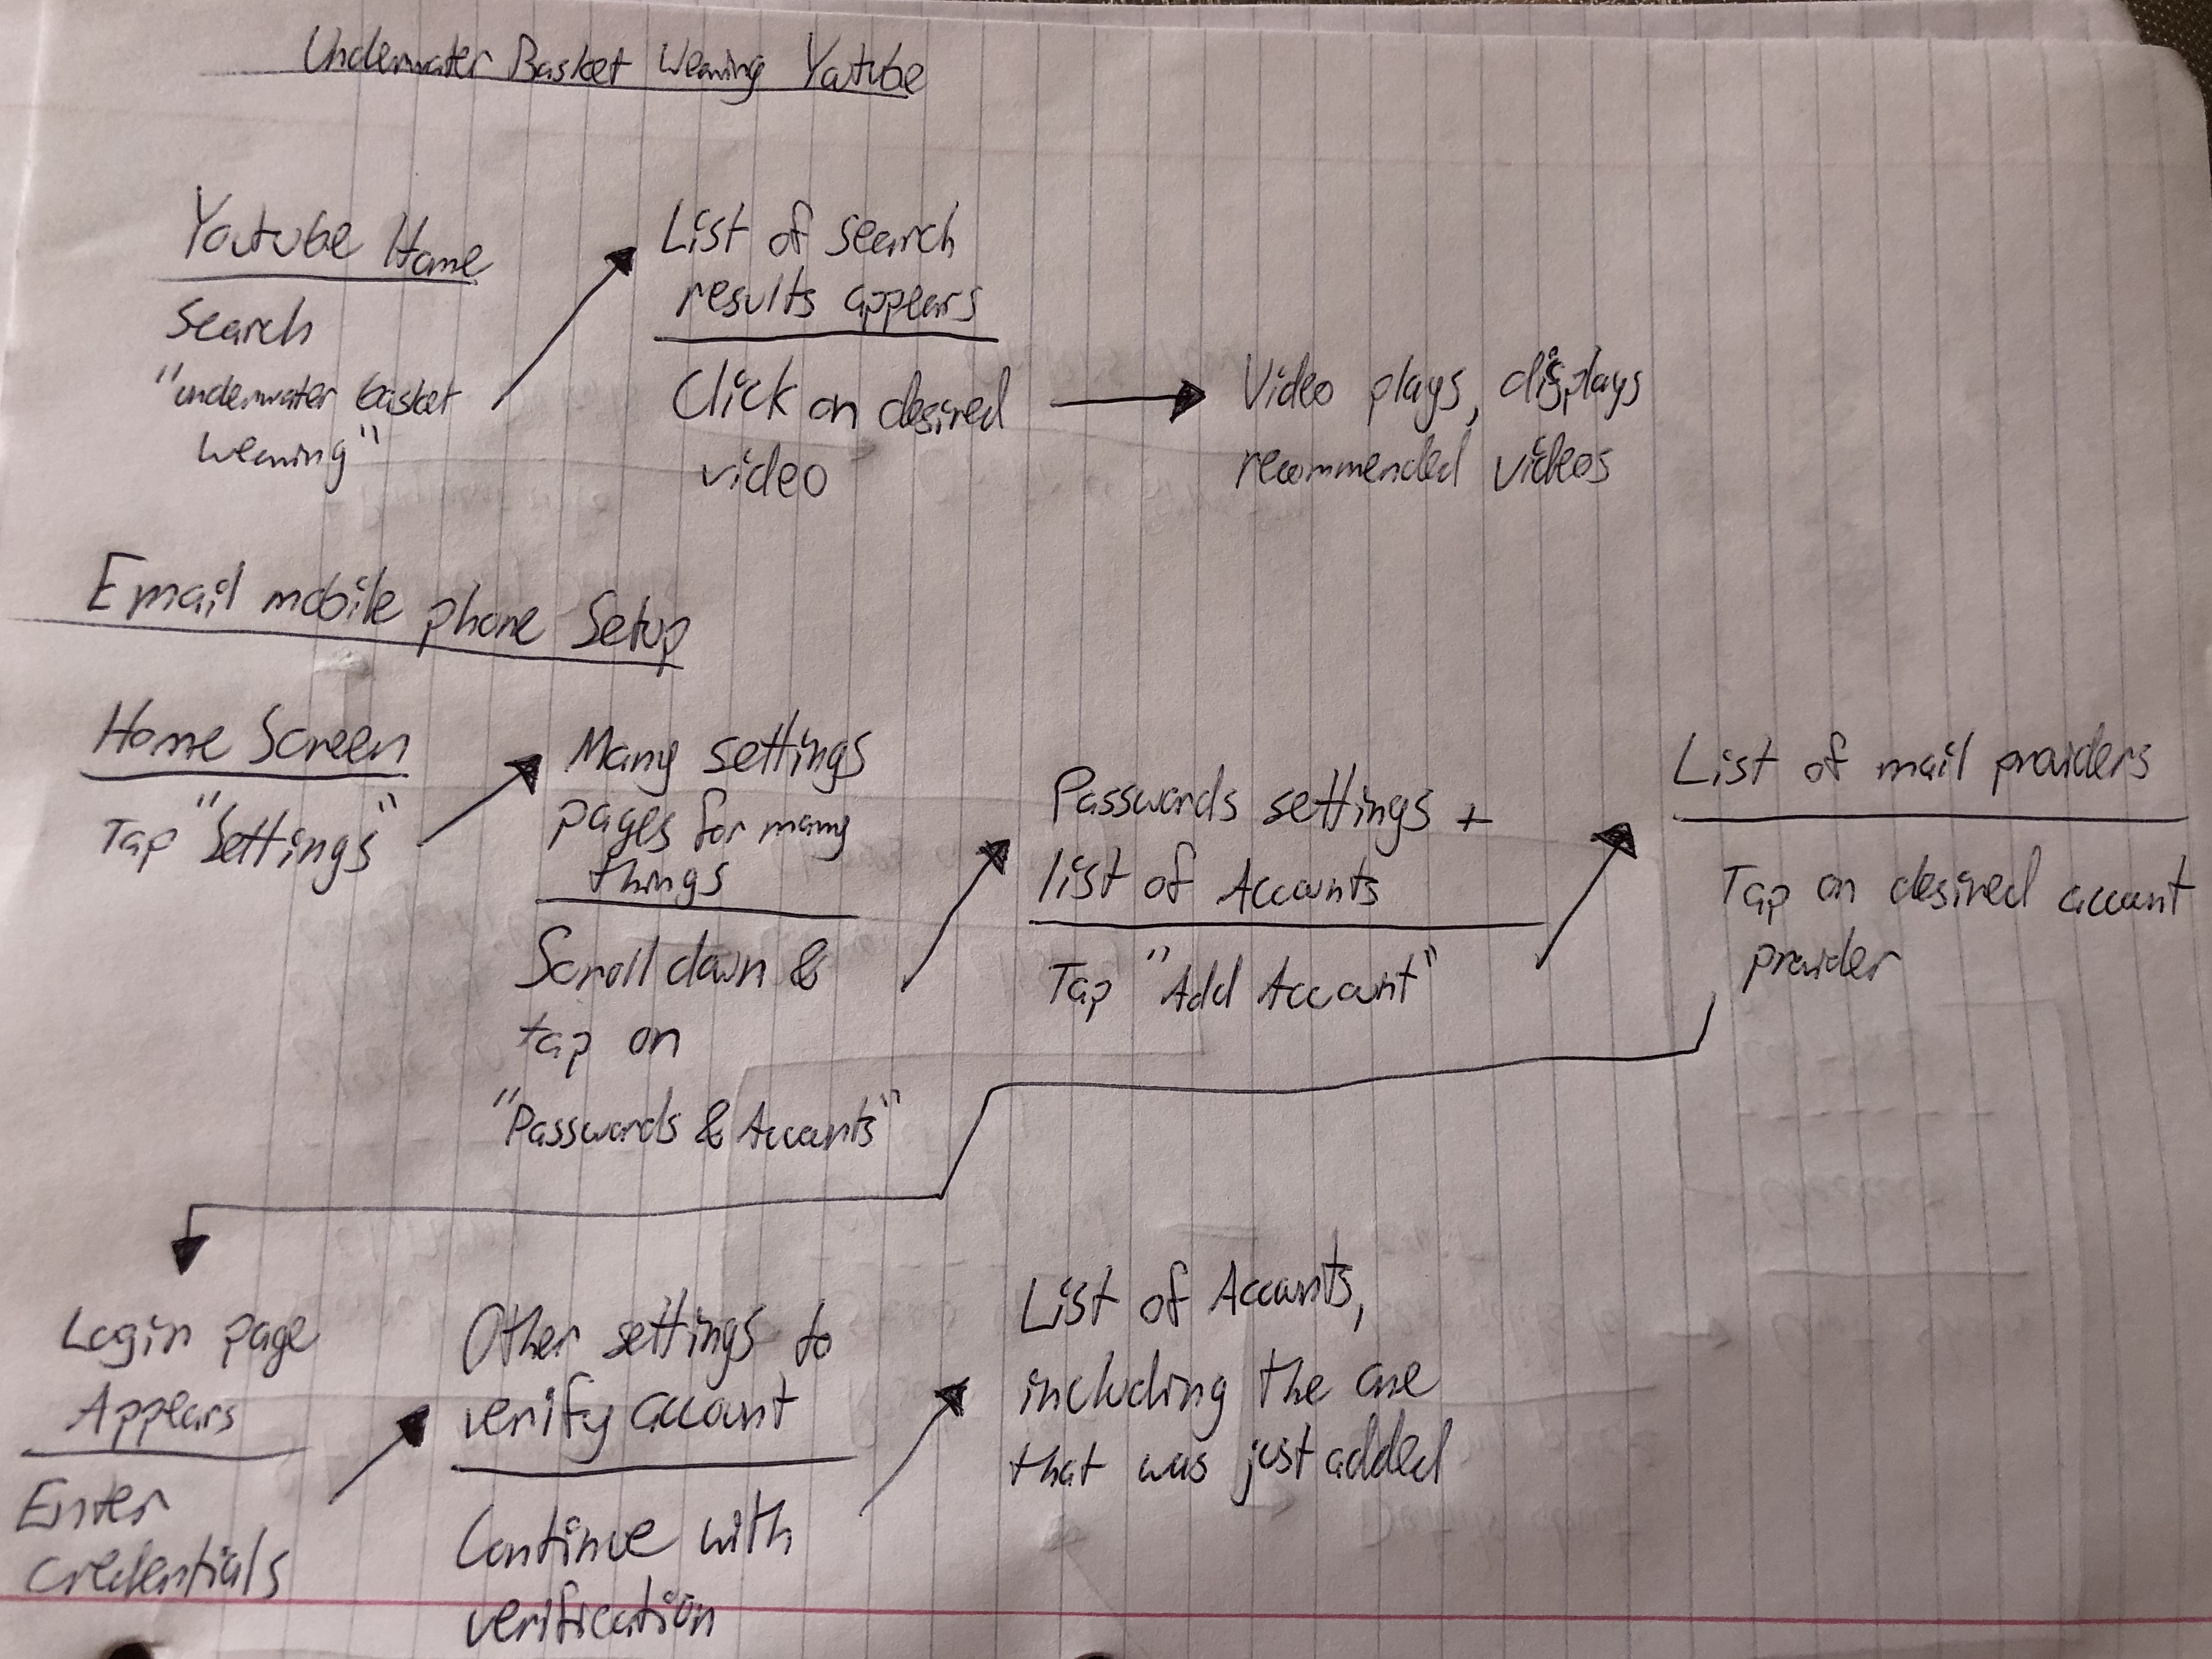 Underwater Basket Weaving Youtube
Youtube Home
Search
"underwater basket
weaving"
List of search
results appears
Click on desired
video
Video plays, displays
recommended videos
Email mobile phone Setup
Home Screen
Tap "Settings"
Many settings
pages for many
things
Scroll down &
tap on
"Passwords & Accounts"
Passwords settings +
list of Accounts
Tap "Add Account"
List of mail providers
Tap on desired account
provider
Login page
Appears
Enter
credentials
Other settings to
verify account
Continue with
verification
List of Accounts,
including the one
that was just added